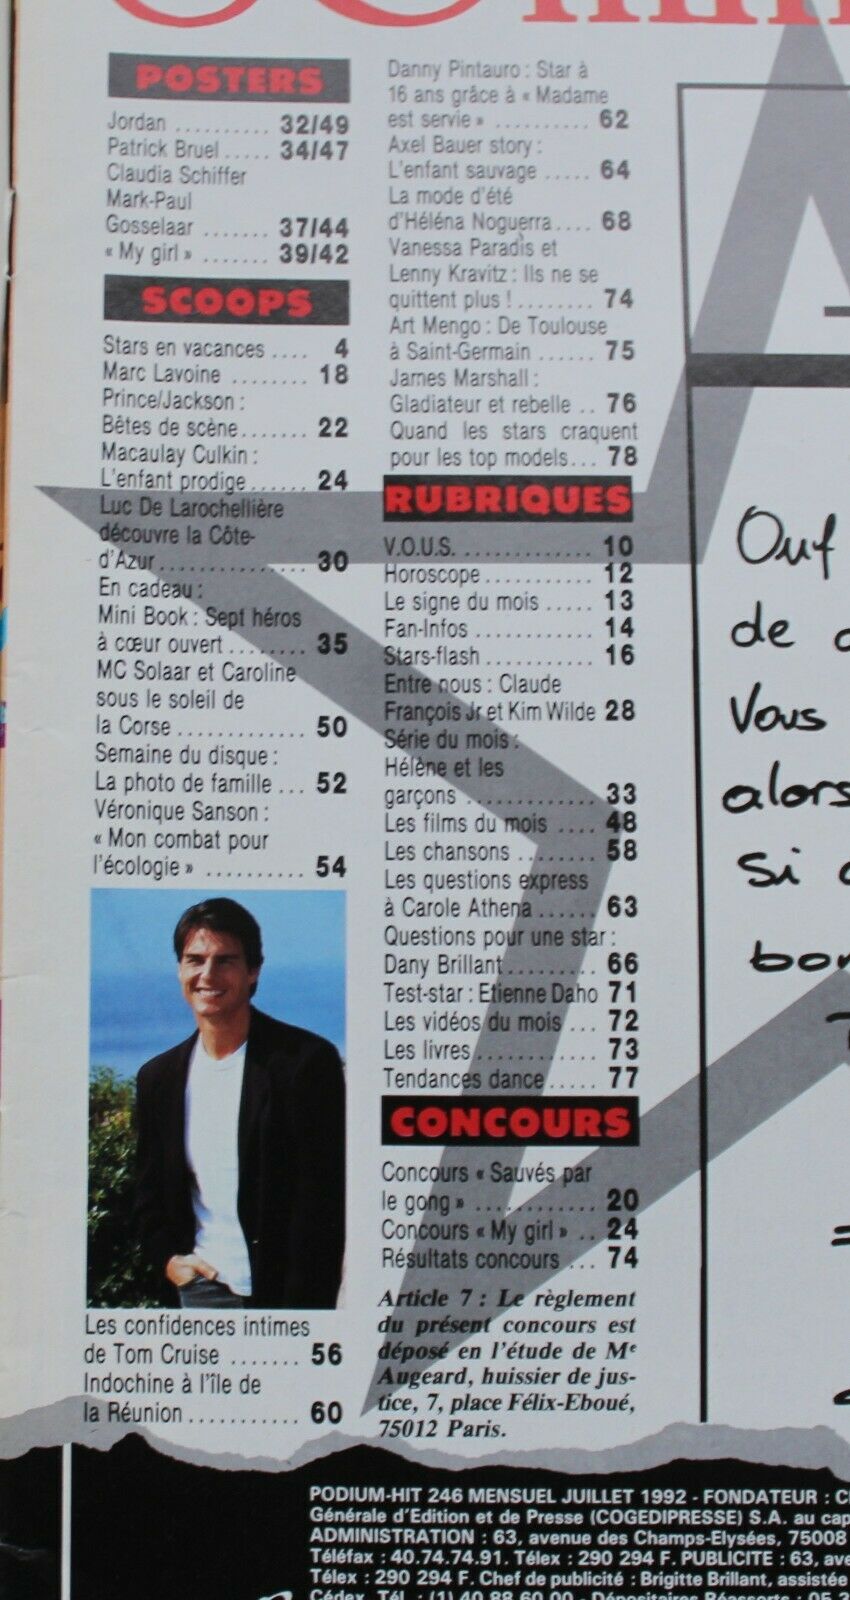 POSTERS
Jordan .......... 32/49
Patrick Bruel ..... 34/47
Claudia Schiffer
Mark-Paul
Gosselaar ....... 37/44
« My girl » ....... 39/42
SCOOPS
Stars en vacances .... 4
Marc Lavoine ........ 18
Prince/Jackson :
Bêtes de scène....... 22
Macaulay Culkin :
L'enfant prodige...... 24
Luc De Larochellière
découvre la Côte-
d'Azur ............... 30
En cadeau :
Mini Book : Sept héros
à cœur ouvert ........ 35
MC Solaar et Caroline
sous le soleil de
la Corse ............. 50
Semaine du disque :
La photo de famille ... 52
Véronique Sanson :
« Mon combat pour
l'écologie » .......... 54
Les confidences intimes
de Tom Cruise ....... 56
Indochine à l'île de
la Réunion ........... 60
Danny Pintauro : Star à
16 ans grâce à « Madame
est servie » .......... 62
Axel Bauer story :
L'enfant sauvage ..... 64
La mode d'été
d'Héléna Noguerra.... 68
Vanessa Paradis et
Lenny Kravitz : Ils ne se
quittent plus ! ........ 74
Art Mengo : De Toulouse
à Saint-Germain ...... 75
James Marshall :
Gladiateur et rebelle .. 76
Quand les stars craquent
pour les top models... 78
RUBRIQUES
V.O.U.S. ............. 10
Horoscope ........... 12
Le signe du mois ..... 13
Fan-Infos ............ 14
Stars-flash ........... 16
Entre nous : Claude
François Jr et Kim Wilde 28
Série du mois :
Hélène et les
garçons ............. 33
Les films du mois .... 48
Les chansons ........ 58
Les questions express
à Carole Athena ...... 63
Questions pour une star :
Dany Brillant......... 66
Test-star : Etienne Daho 71
Les vidéos du mois ... 72
Les livres ............ 73
Tendances dance..... 77
CONCOURS
Concours « Sauvés par
le gong » ............ 20
Concours « My girl » .. 24
Résultats concours ... 74
Article 7 : Le règlement
du présent concours est
déposé en l'étude de Me
Augeard, huissier de jus-
tice, 7, place Félix-Eboué,
75012 Paris.
Ouf
de
Vous
alors
si
bon
PODIUM-HIT 246 MENSUEL JUILLET 1992 - FONDATEUR :
Générale d'Edition et de Presse (COGEDIPRESSE) S.A. au cap
ADMINISTRATION : 63, avenue des Champs-Elysées, 75008
Téléfax : 40.74.74.91. Télex : 290 294 F. PUBLICITE : 63, ave
Télex : 290 294 F. Chef de publicité : Brigitte Brillant, assistée
Cédex. Tél. : (1) 40.88.60.00 - Dépositaires Réassorts : 05